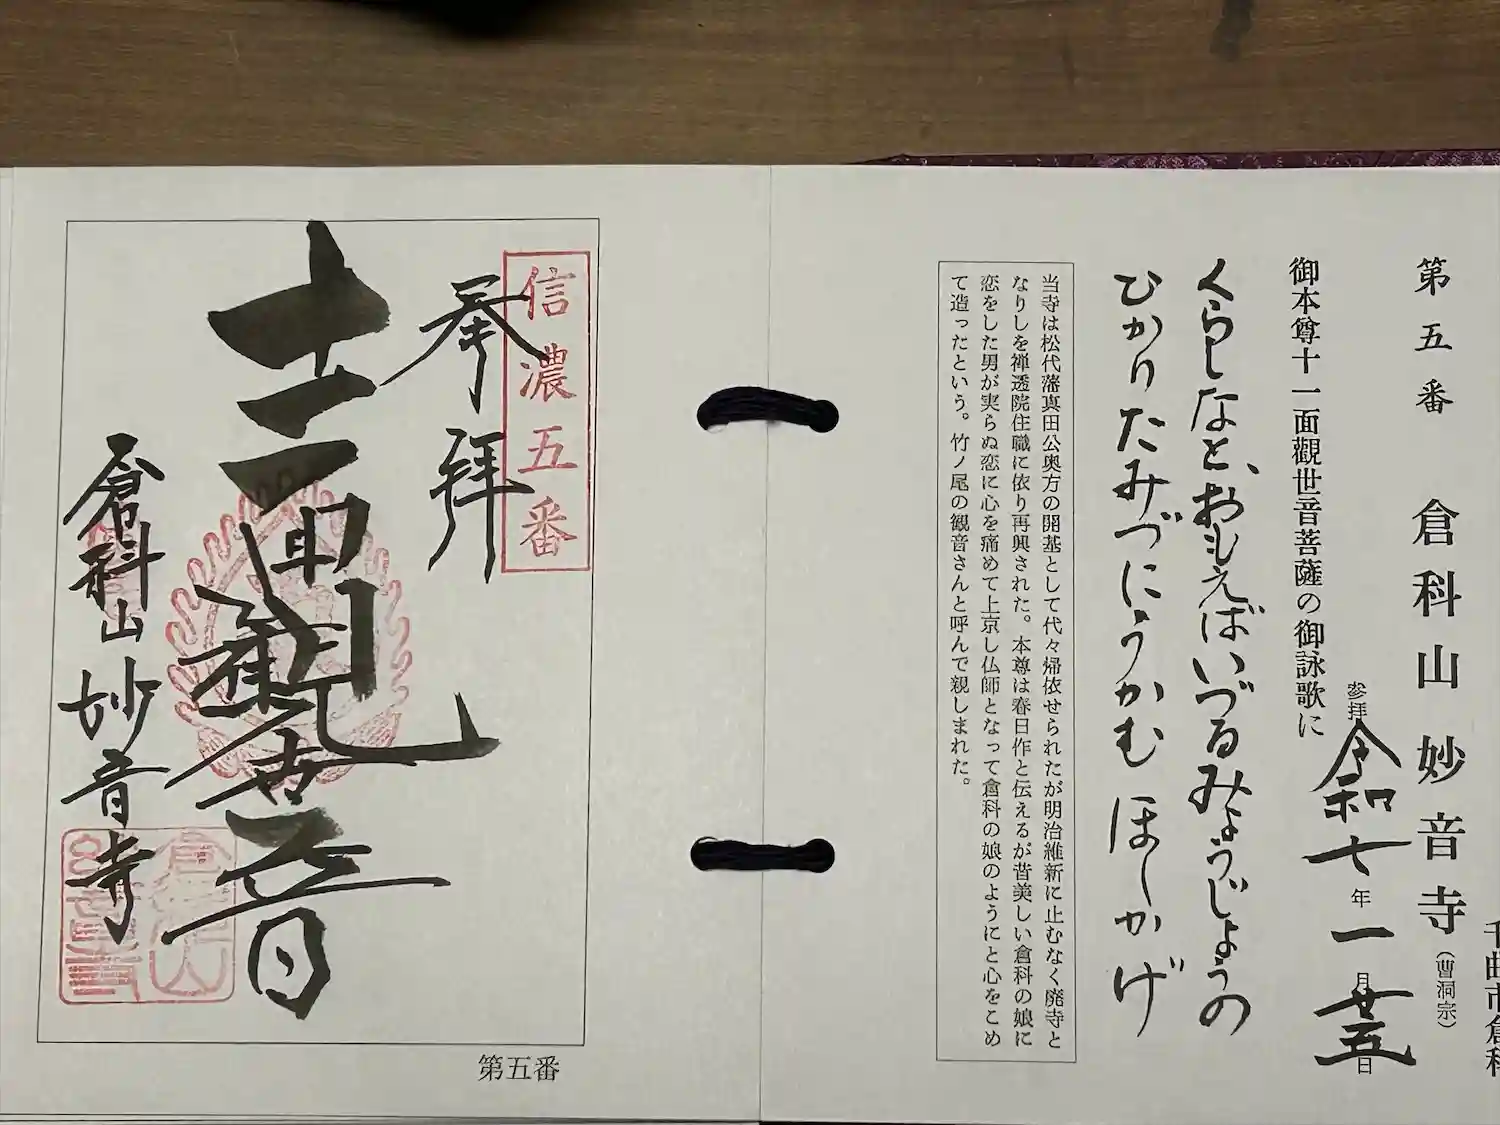 千曲市倉科
第五番　倉科山妙音寺（曹洞宗）
参拝　令和七年一月廿五日
御本尊十一面觀世音菩薩の御詠歌に
くらしなと、おもえばいづるみょうじょうの
ひかりたみづにうかむほしかげ
当寺は松代藩真田公奥方の開基として代々帰依せられたが明治維新に止むなく廃寺と
なりしを禅透院住職に依り再興された。本尊は春日作と伝えるが昔美しい倉科の娘に
恋をした男が実らぬ恋に心を痛めて上京し仏師となって倉科の娘のようにと心をこめ
て造ったという。竹ノ尾の観音さんと呼んで親しまれた。
信濃五番
奉拝
十一面観世音
倉科山妙音寺
第五番